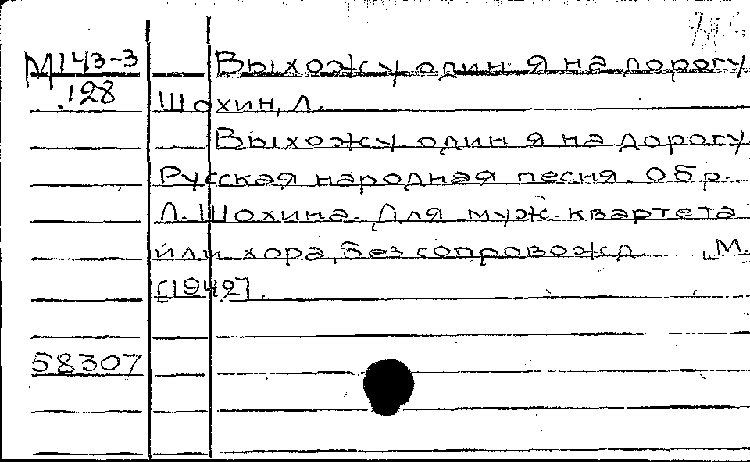 М143-3 Выхожу один я на дорогу
.128 Шохин, Л.
Выхожу один я на дорогу
Русская народная песня. Обр.
Л. Шохина. Для муж. квартета
или хора, без сопровожд. М.
[1942].
58307